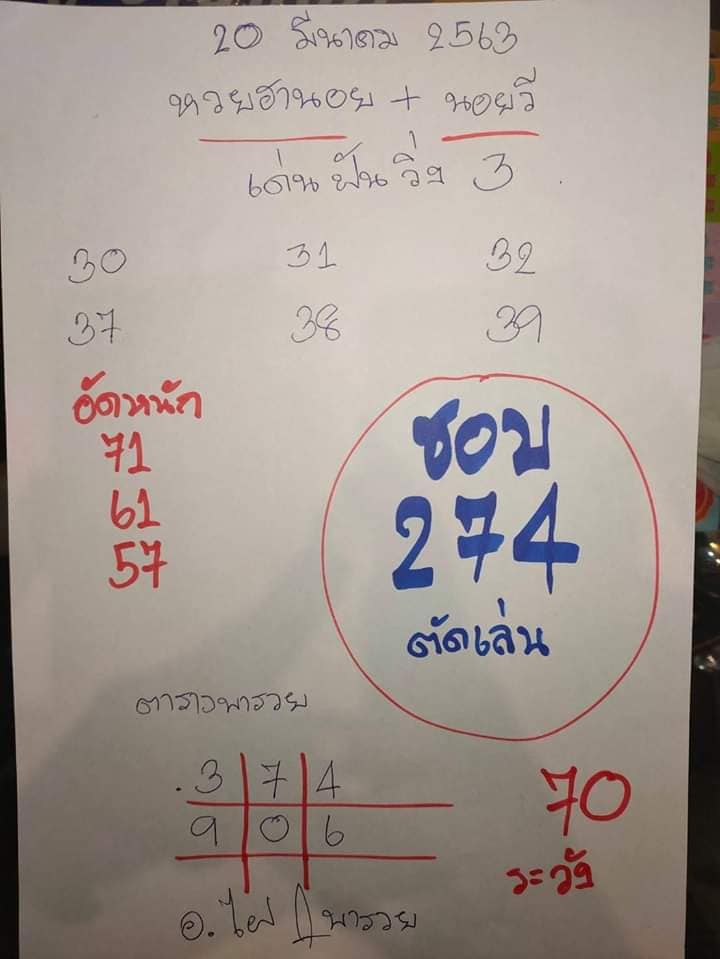 20 มีนาคม 2563
หวยฮานอย + นอยวี
เด่น ฟัน วิ่ง 3
30 31 32
37 38 39
อัดหนัก
71
61
57
ชอบ
274
ตัดเล่น
ตารางพารวย
3 7 4
9 0 6
70
ระวัง
อ. ไผ่ พารวย